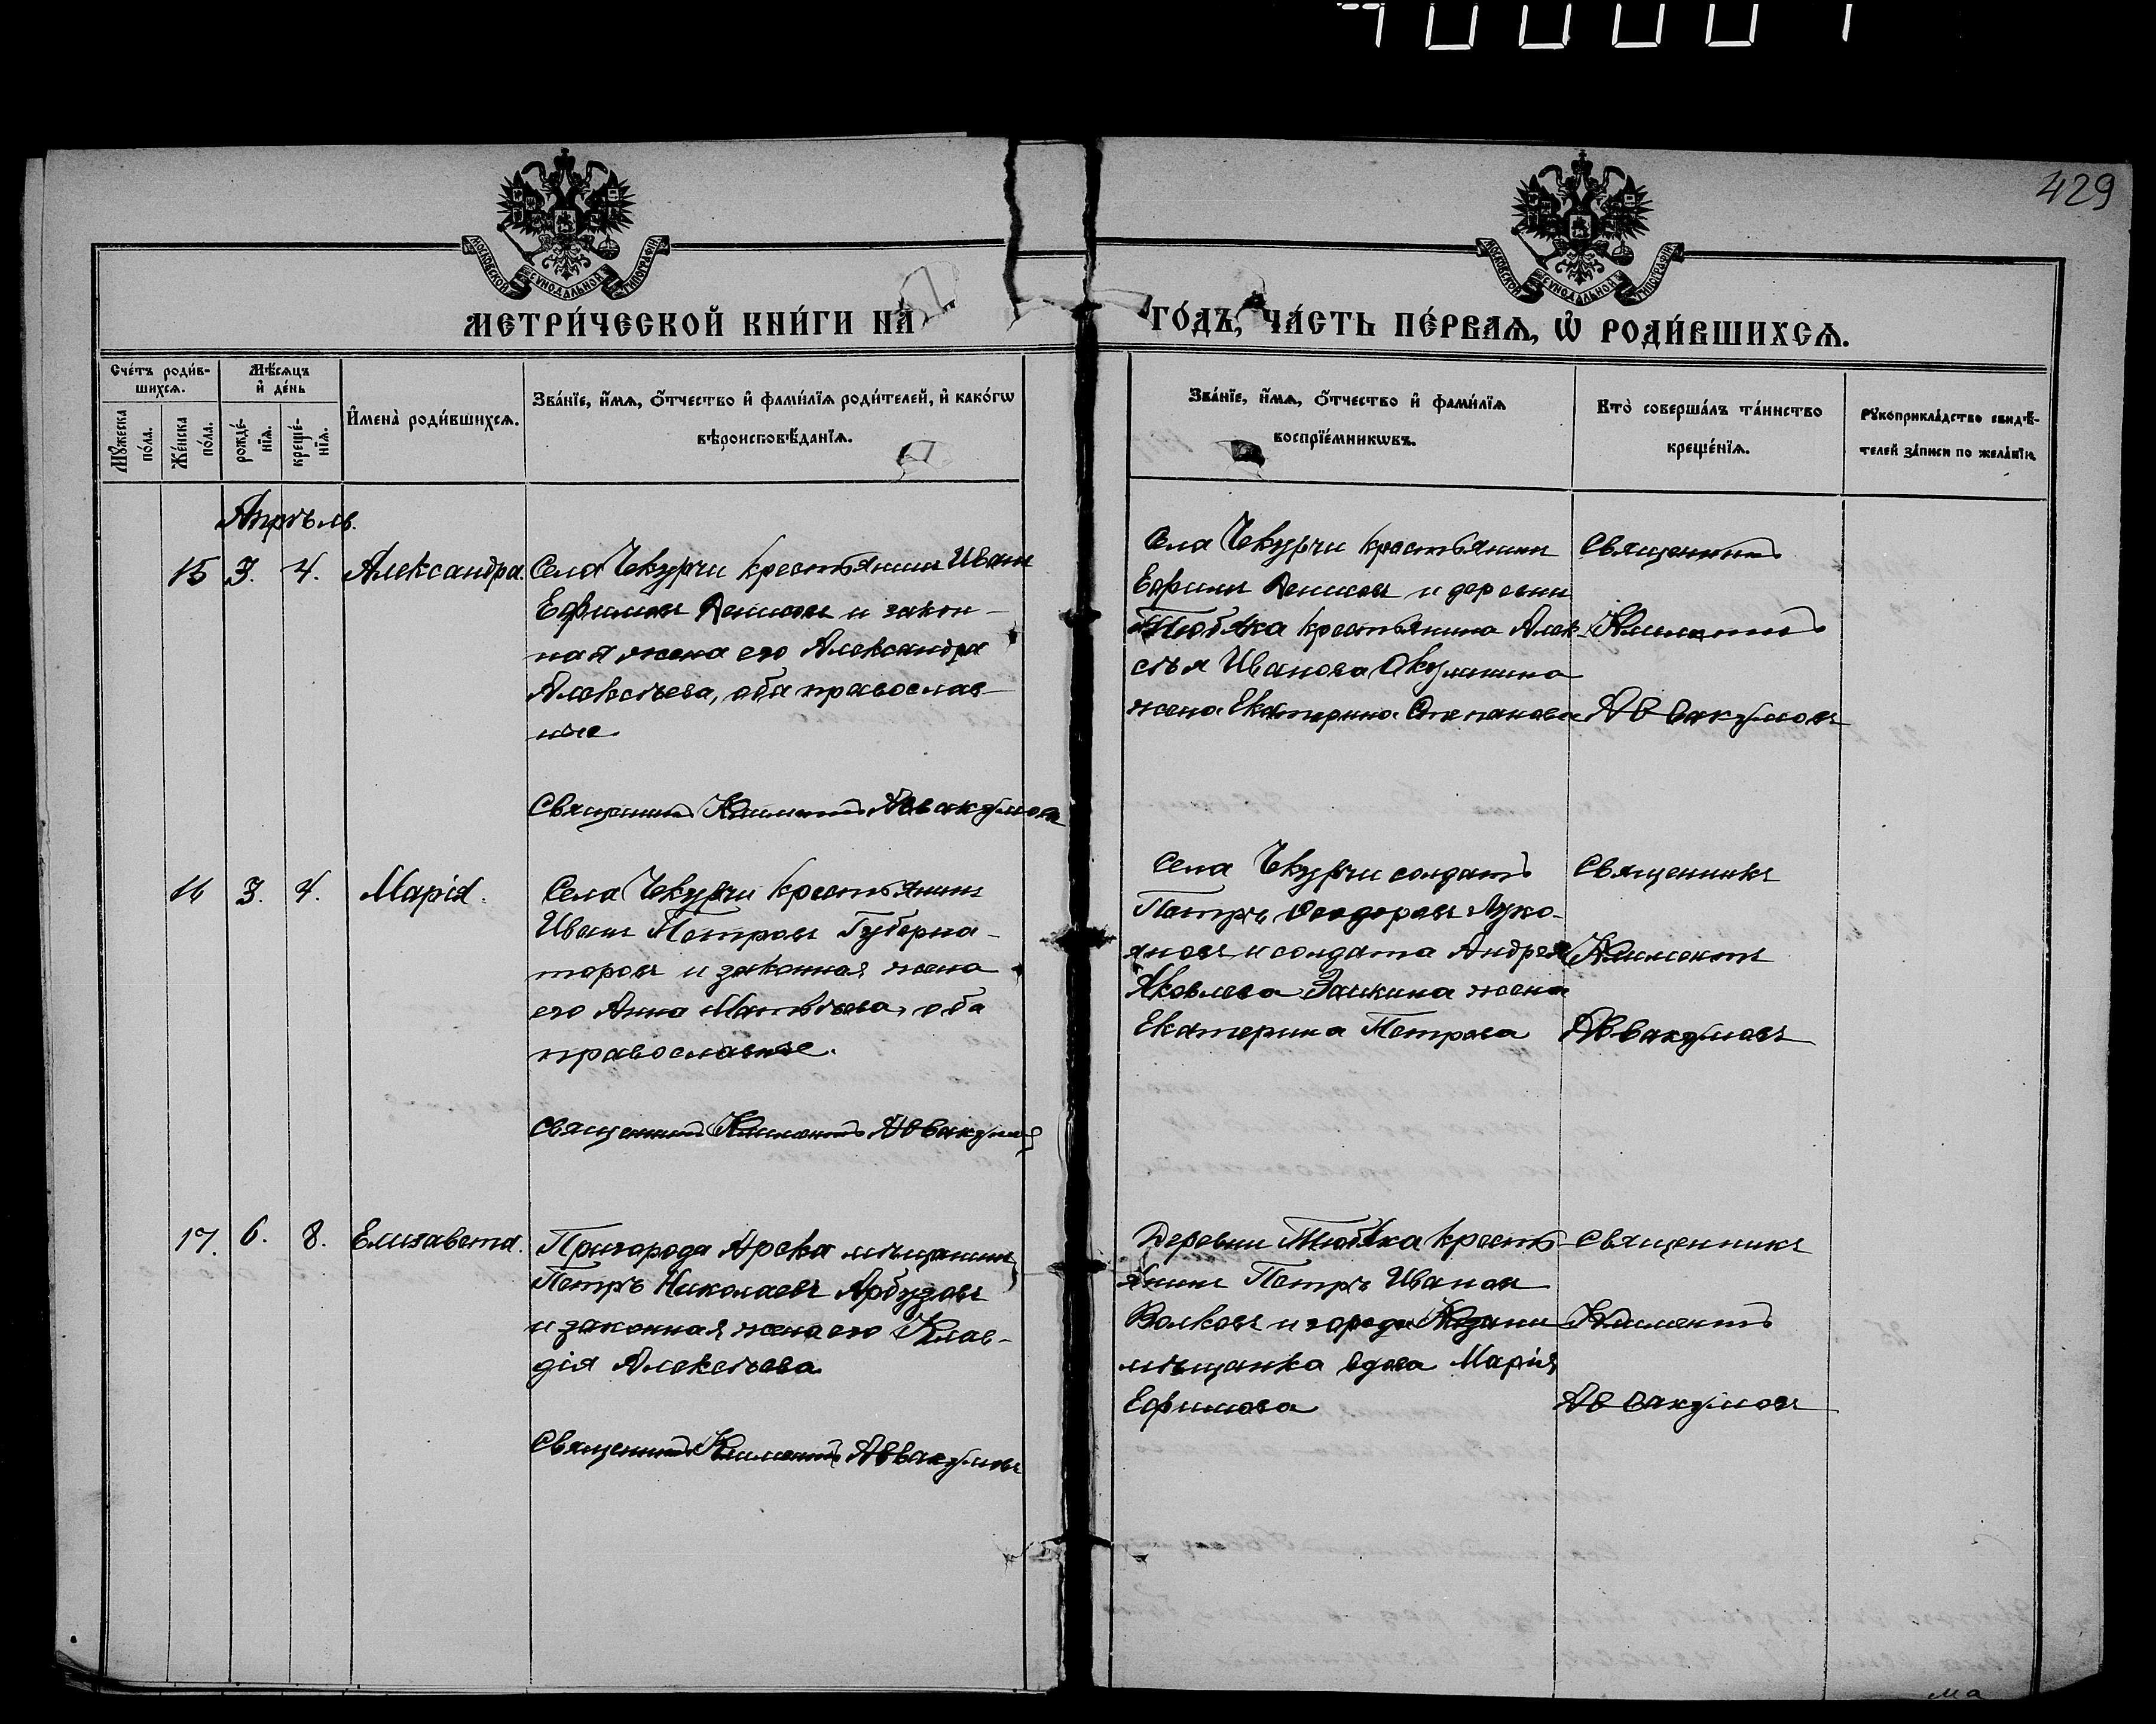 429
МОСКОВСКОЙ СѴНОДАЛЬНОЙ ТИПОГРАФІИ
МОСКОВСКОЙ СѴНОДАЛЬНОЙ ТИПОГРАФІИ
МЕТРИ́ЧЕСКОЙ КНИ́ГИ НА ГО́ДЪ, ЧА́СТЬ ПЕ́РВАѦ, Ѡ҆ РОДИ́ВШИХСѦ.
Сче́тъ роди́в-
шихсѧ.
Мѣ́сѧцъ
и҆ де́нь
Мꙋ́жеска
по́ла.
Же́нска
по́ла.
рожде́-
нїѧ.
креще́-
нїѧ.
И҆мена̀ роди́вшихсѧ.
Зва́нїе, и҆́мѧ, ѻ҆́тчество и҆ фами́лїѧ роди́телей, и҆ како́гѡ
вѣроисповѣ́данїѧ.
Зва́нїе, и҆́мѧ, ѻ҆́тчество и҆ фами́лїѧ
воспрїе́мникѡвъ.
Кто̀ соверша́лъ та́инство
креще́нїѧ.
Рꙋкоприкла́дство свидѣ́-
телей за́писи по жела́нїю.
Апрѣль.
15 3. 4. Александра. Села Чекурчи крестьянинъ Иванъ
Ефимовъ Денисовъ и закон-
ная жена его Александра
Алексѣева, оба православ-
ные.
Священникъ Климентъ Аввакумовъ
Села Чекурчи крестьянинъ
Ефимъ Денисовъ и деревни
Тюбяка крестьянина Алек-
сѣя Иванова Окулинина
жена Екатерина Степанова
Священникъ
Климентъ
Аввакумовъ
16 3. 4. Марія. Села Чекурчи крестьянинъ
Иванъ Петровъ Губерна-
торовъ и законная жена
его Анна Матвѣева, оба
православные.
Священникъ Климентъ Аввакумовъ
Села Чекурчи солдатъ
Петръ Ѳеодоровъ Луко-
яновъ и солдата Андрея
Яковлева Заикина жена
Екатерина Петрова
Священникъ
Климентъ
Аввакумовъ
17. 6. 8. Елизавета. Пригорода Арска мѣщанинъ
Петръ Николаевъ Арбузовъ
и законная жена его Клав-
дія Алексѣева
Священникъ Климентъ Аввакумовъ
Деревни Тюбяка кресть-
янинъ Петръ Ивановъ
Волковъ и города Казани
мѣщанка вдова Марія
Ефимова
Священникъ
Климентъ
Аввакумовъ
ма